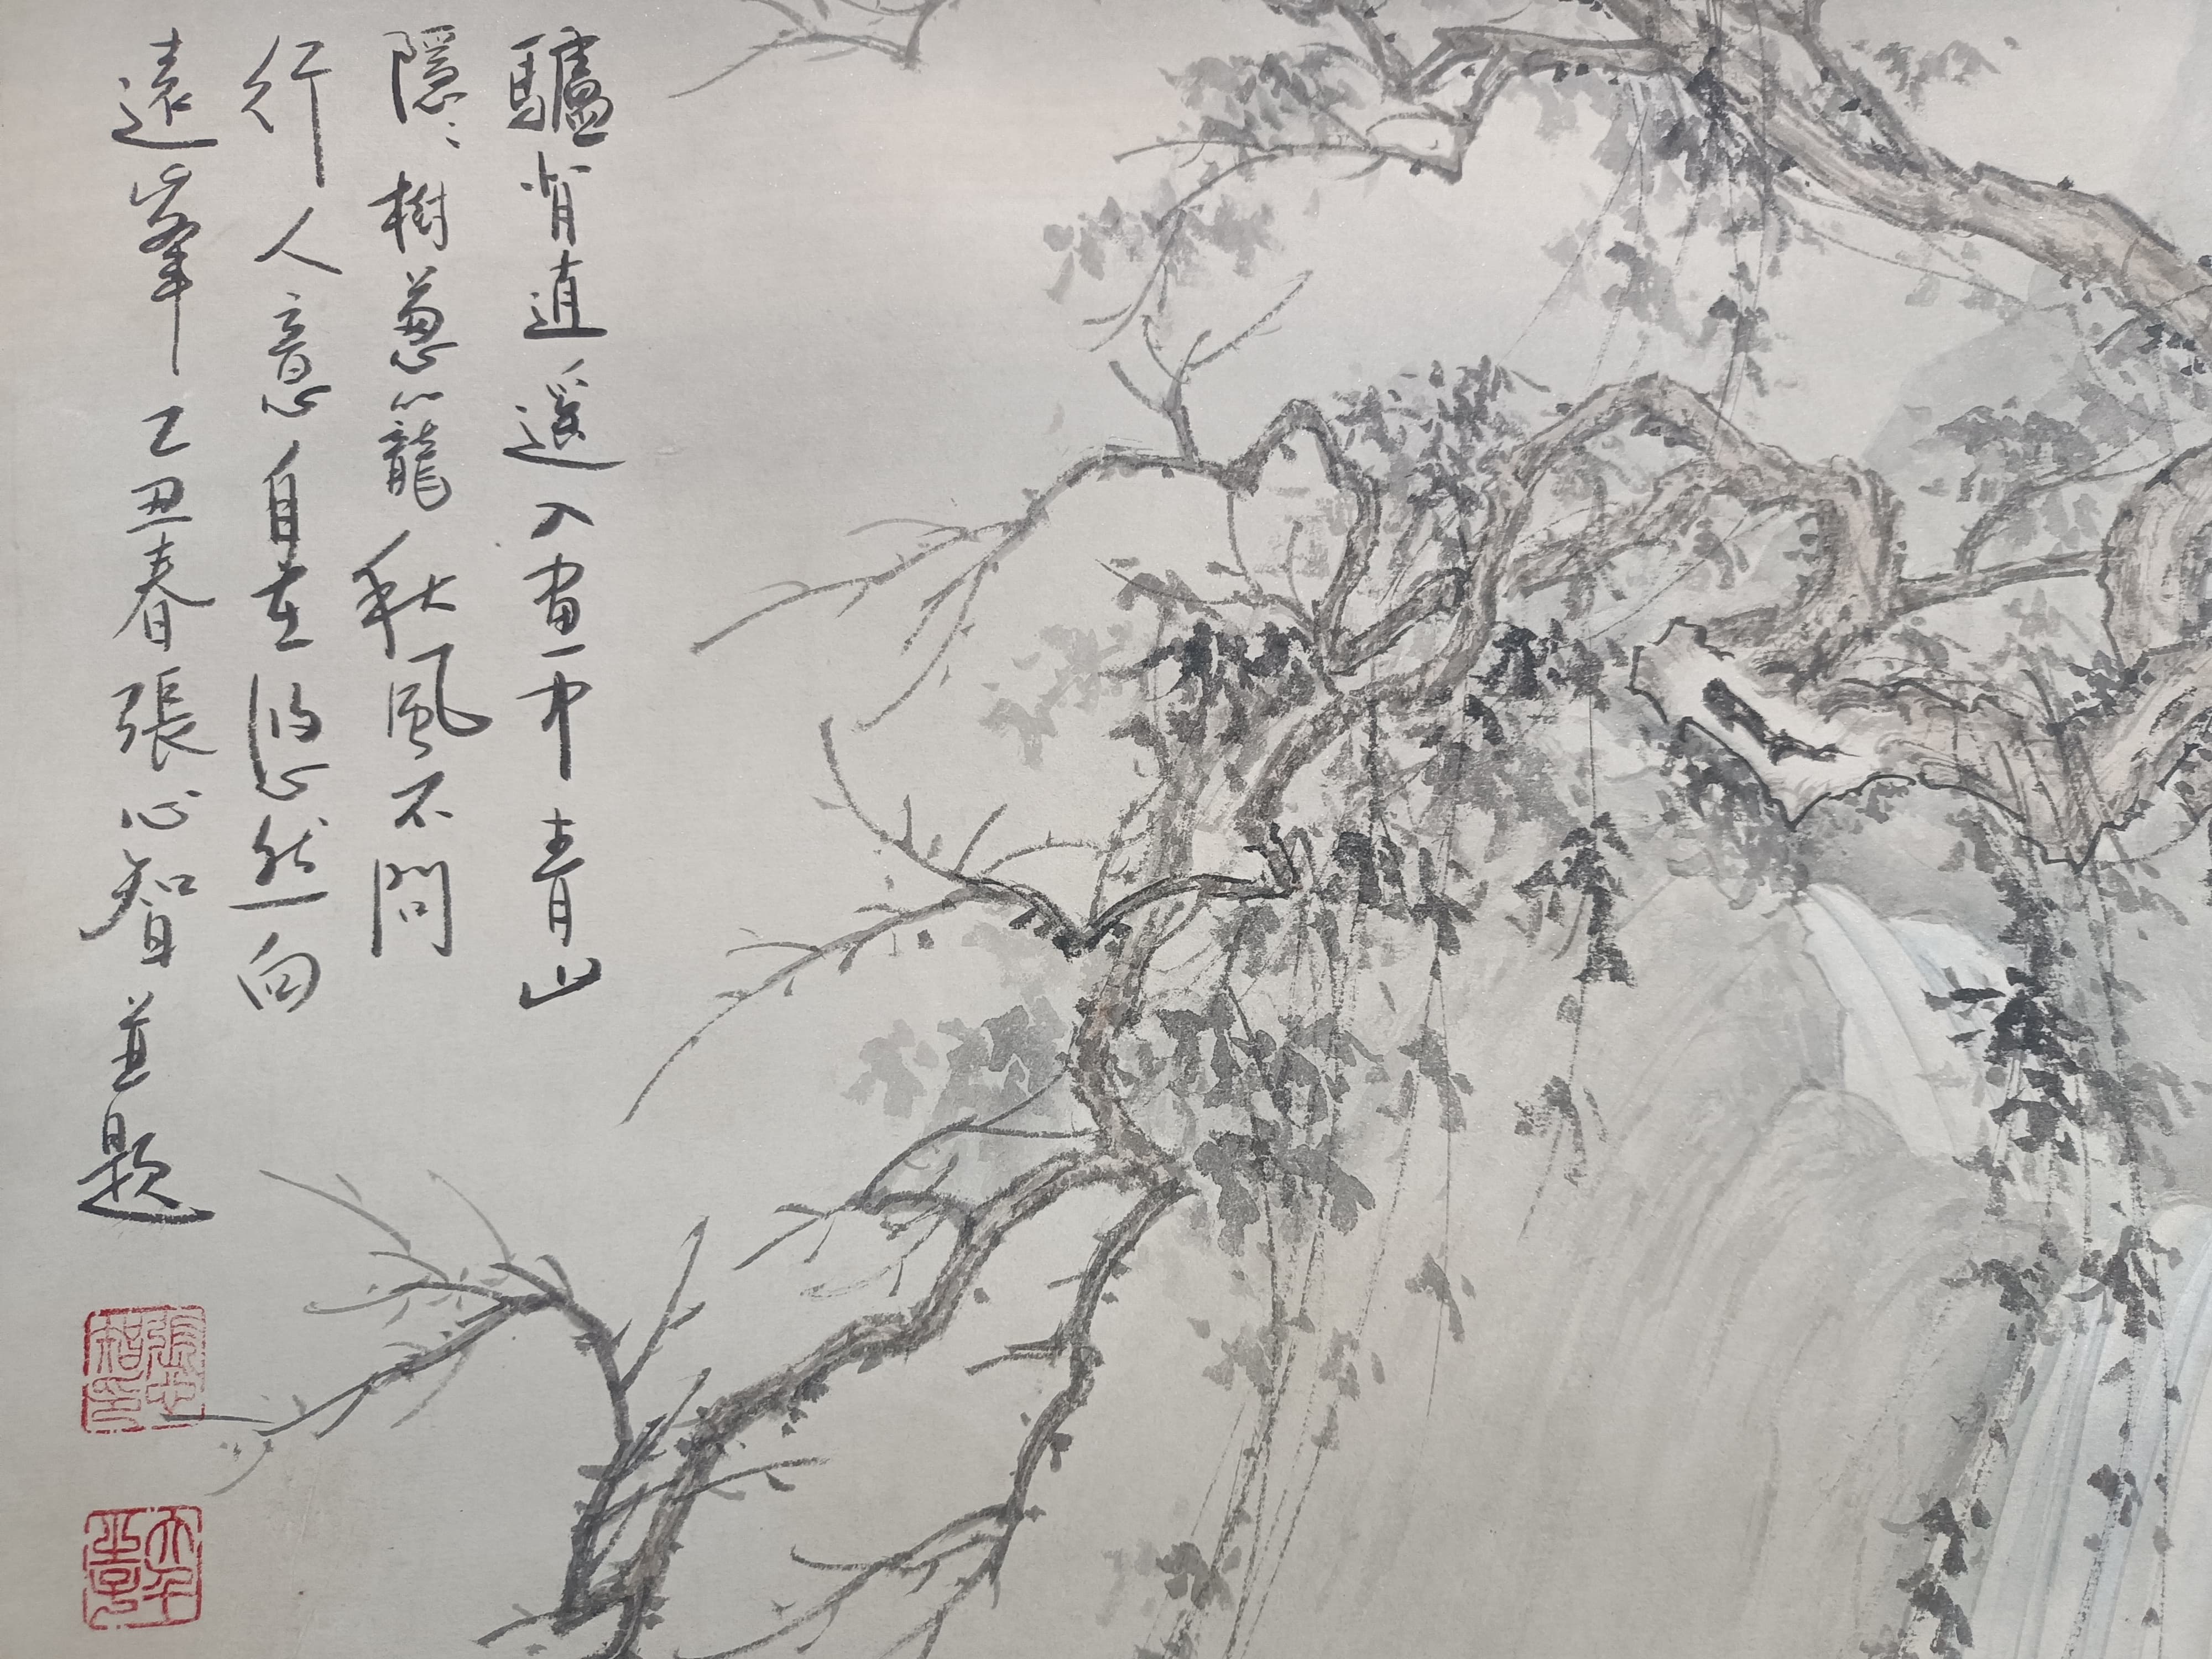 驢背逍遥入畫中青山
隱〻樹蔥籠秋風不問
行人意自在悠然向
遠峯乙丑春張心智並題
張心智印